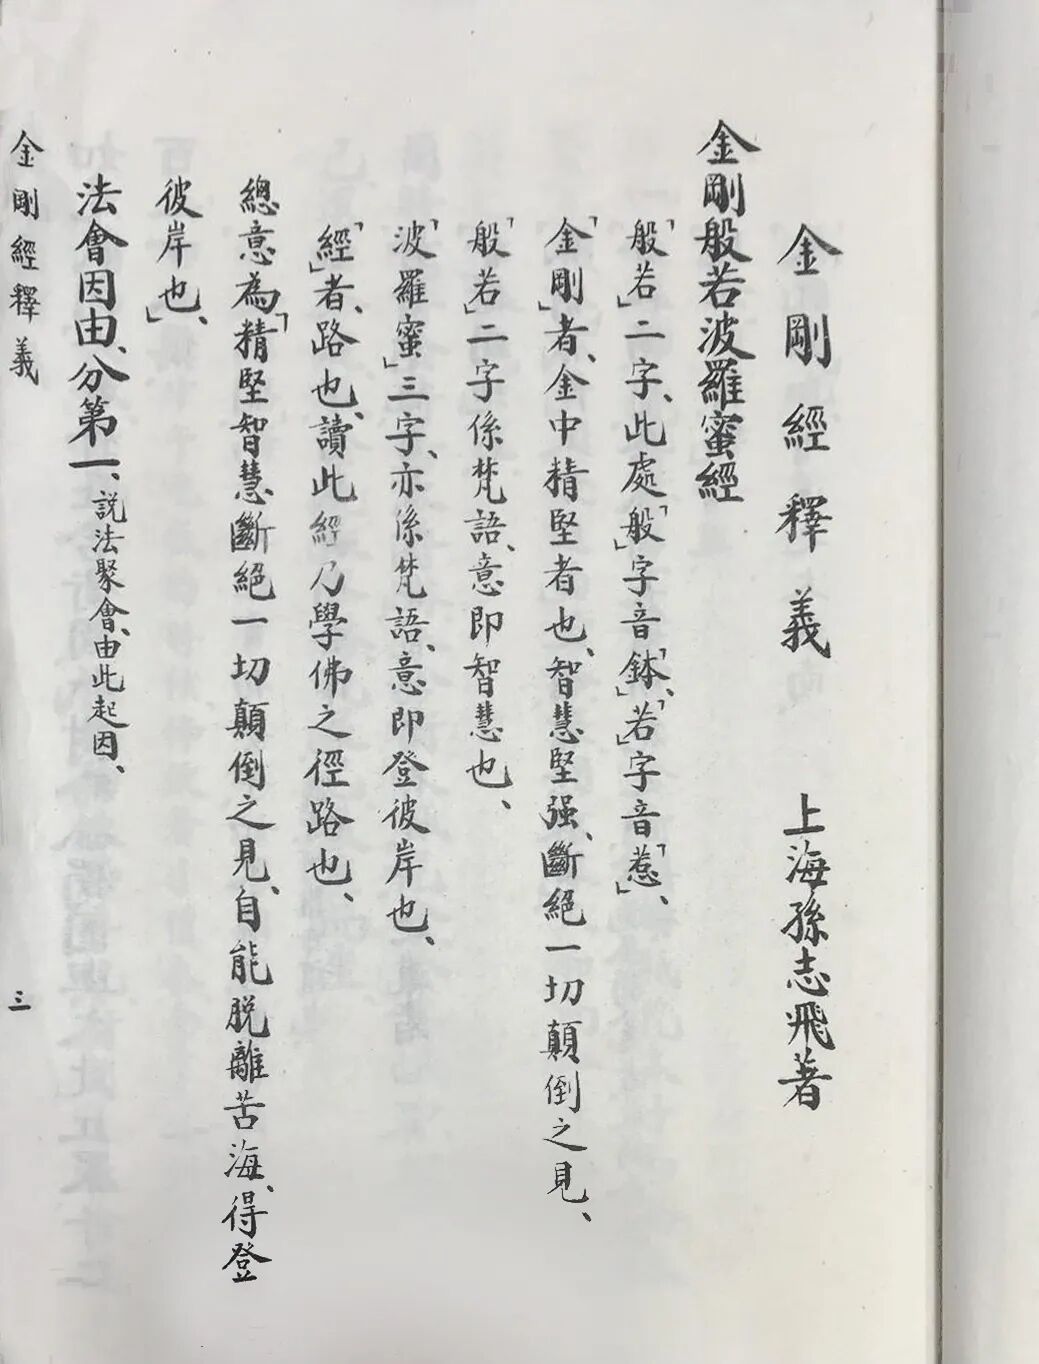 金剛經釋義　上海孫志飛著
金剛般若波羅蜜經
「般若」二字、此處「般」字音「鉢」、「若」字音「惹」、
「金剛」者、金中精堅者也、智慧堅强、斷絕一切顛倒之見、
「般若」二字係梵語、意即智慧也、
「波羅蜜」三字、亦係梵語、意即登彼岸也、
「經」者、路也、讀此經乃學佛之徑路也、
總意為「精堅智慧斷絕一切顛倒之見、自能脱離苦海、得登
彼岸也」、
法會因由、分第一、説法聚會、由此起因、
金剛經釋義　三